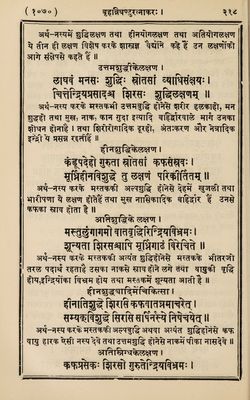 (१०७०) बृहन्निघण्टुरत्नाकरः। ३९८
अर्थ-नस्यमें शुद्धिलक्षण तथा हीनयोगलक्षण तथा अतियोगलक्षण
ये तीन ही लक्षण विशेष करके शास्त्रज्ञ वैद्योंने कहे हैं उन लक्षणोंको
आगे संक्षेपसे कहते हैं ॥
उत्तमशुद्धिकेलक्षण।
लाघवं मनसः शुद्धिः स्रोतसां व्याधिसंक्षयः।
चित्तेन्द्रियप्रसादश्च शिरसः शुद्धिलक्षणम् ॥
अर्थ-नस्य करके मस्तककी उत्तमशुद्धि होनेसे शरीर हलकाहो, मन
शुद्धहो तथा मुख, नाक, कान गुदा इत्यादि बाहिर्द्वारवाले मार्ग उनका
शोधन होनाहै। तथा शिरोरोगादिक दूरहों, अंतःकरण और नेत्रादिक
इन्द्री ये प्रसन्न रहतीहैं ॥
हीनशुद्धिकेलक्षण।
कंडूपदेहो गुरुता स्रोतसां कफसंस्रवः।
मूर्ध्निहीनविशुद्धे तु लक्षणं परिकीर्तितम् ॥
अर्थ-नस्य करके मस्तककी अल्पशुद्धि होनेसे देहमें खुजली तथा
भारीपणा ये लक्षण होतेहैं तथा मुख नासिकादिक बाहिर्द्वार हैं उनसे
कफका स्राव होता है ॥
अतिशुद्धिके लक्षण।
मस्तुलुंगागमो वातवृद्धिरिन्द्रियविभ्रमः।
शून्यता शिरसश्चापि मूर्ध्निगाढं विरेचिते ॥
अर्थ-नस्य करके मस्तककी अत्यंत शुद्धिहोनेसे मस्तकके भीतरजो
तरल पदार्थ रहताहै उसका नाकसे स्राव होने लगे तथा वायुकी वृद्धि
होय, इन्द्रियोंका विभ्रम होय तथा मस्तकमें शून्यता आती है ॥
हीनशुद्ध्यादिमेंचिकित्सा।
हीनातिशुद्धे शिरसि कफवातघ्नमाचरेत्।
सम्यक्विशुद्धे शिरसि सर्पिर्नस्ये निषेचयेत् ॥
अर्थ-नस्य करके मस्तककी अल्पशुद्धि अथवा अत्यंत शुद्धिहोनेसे कफ
वायु हारक ऐसी नस्य देवे तथा उत्तमशुद्धि होनेसे नाकमें घीका नासदेवे ॥
अतिस्निग्धकेलक्षण।
कफप्रसेकः शिरसो गुरुतेन्द्रियविभ्रमः।